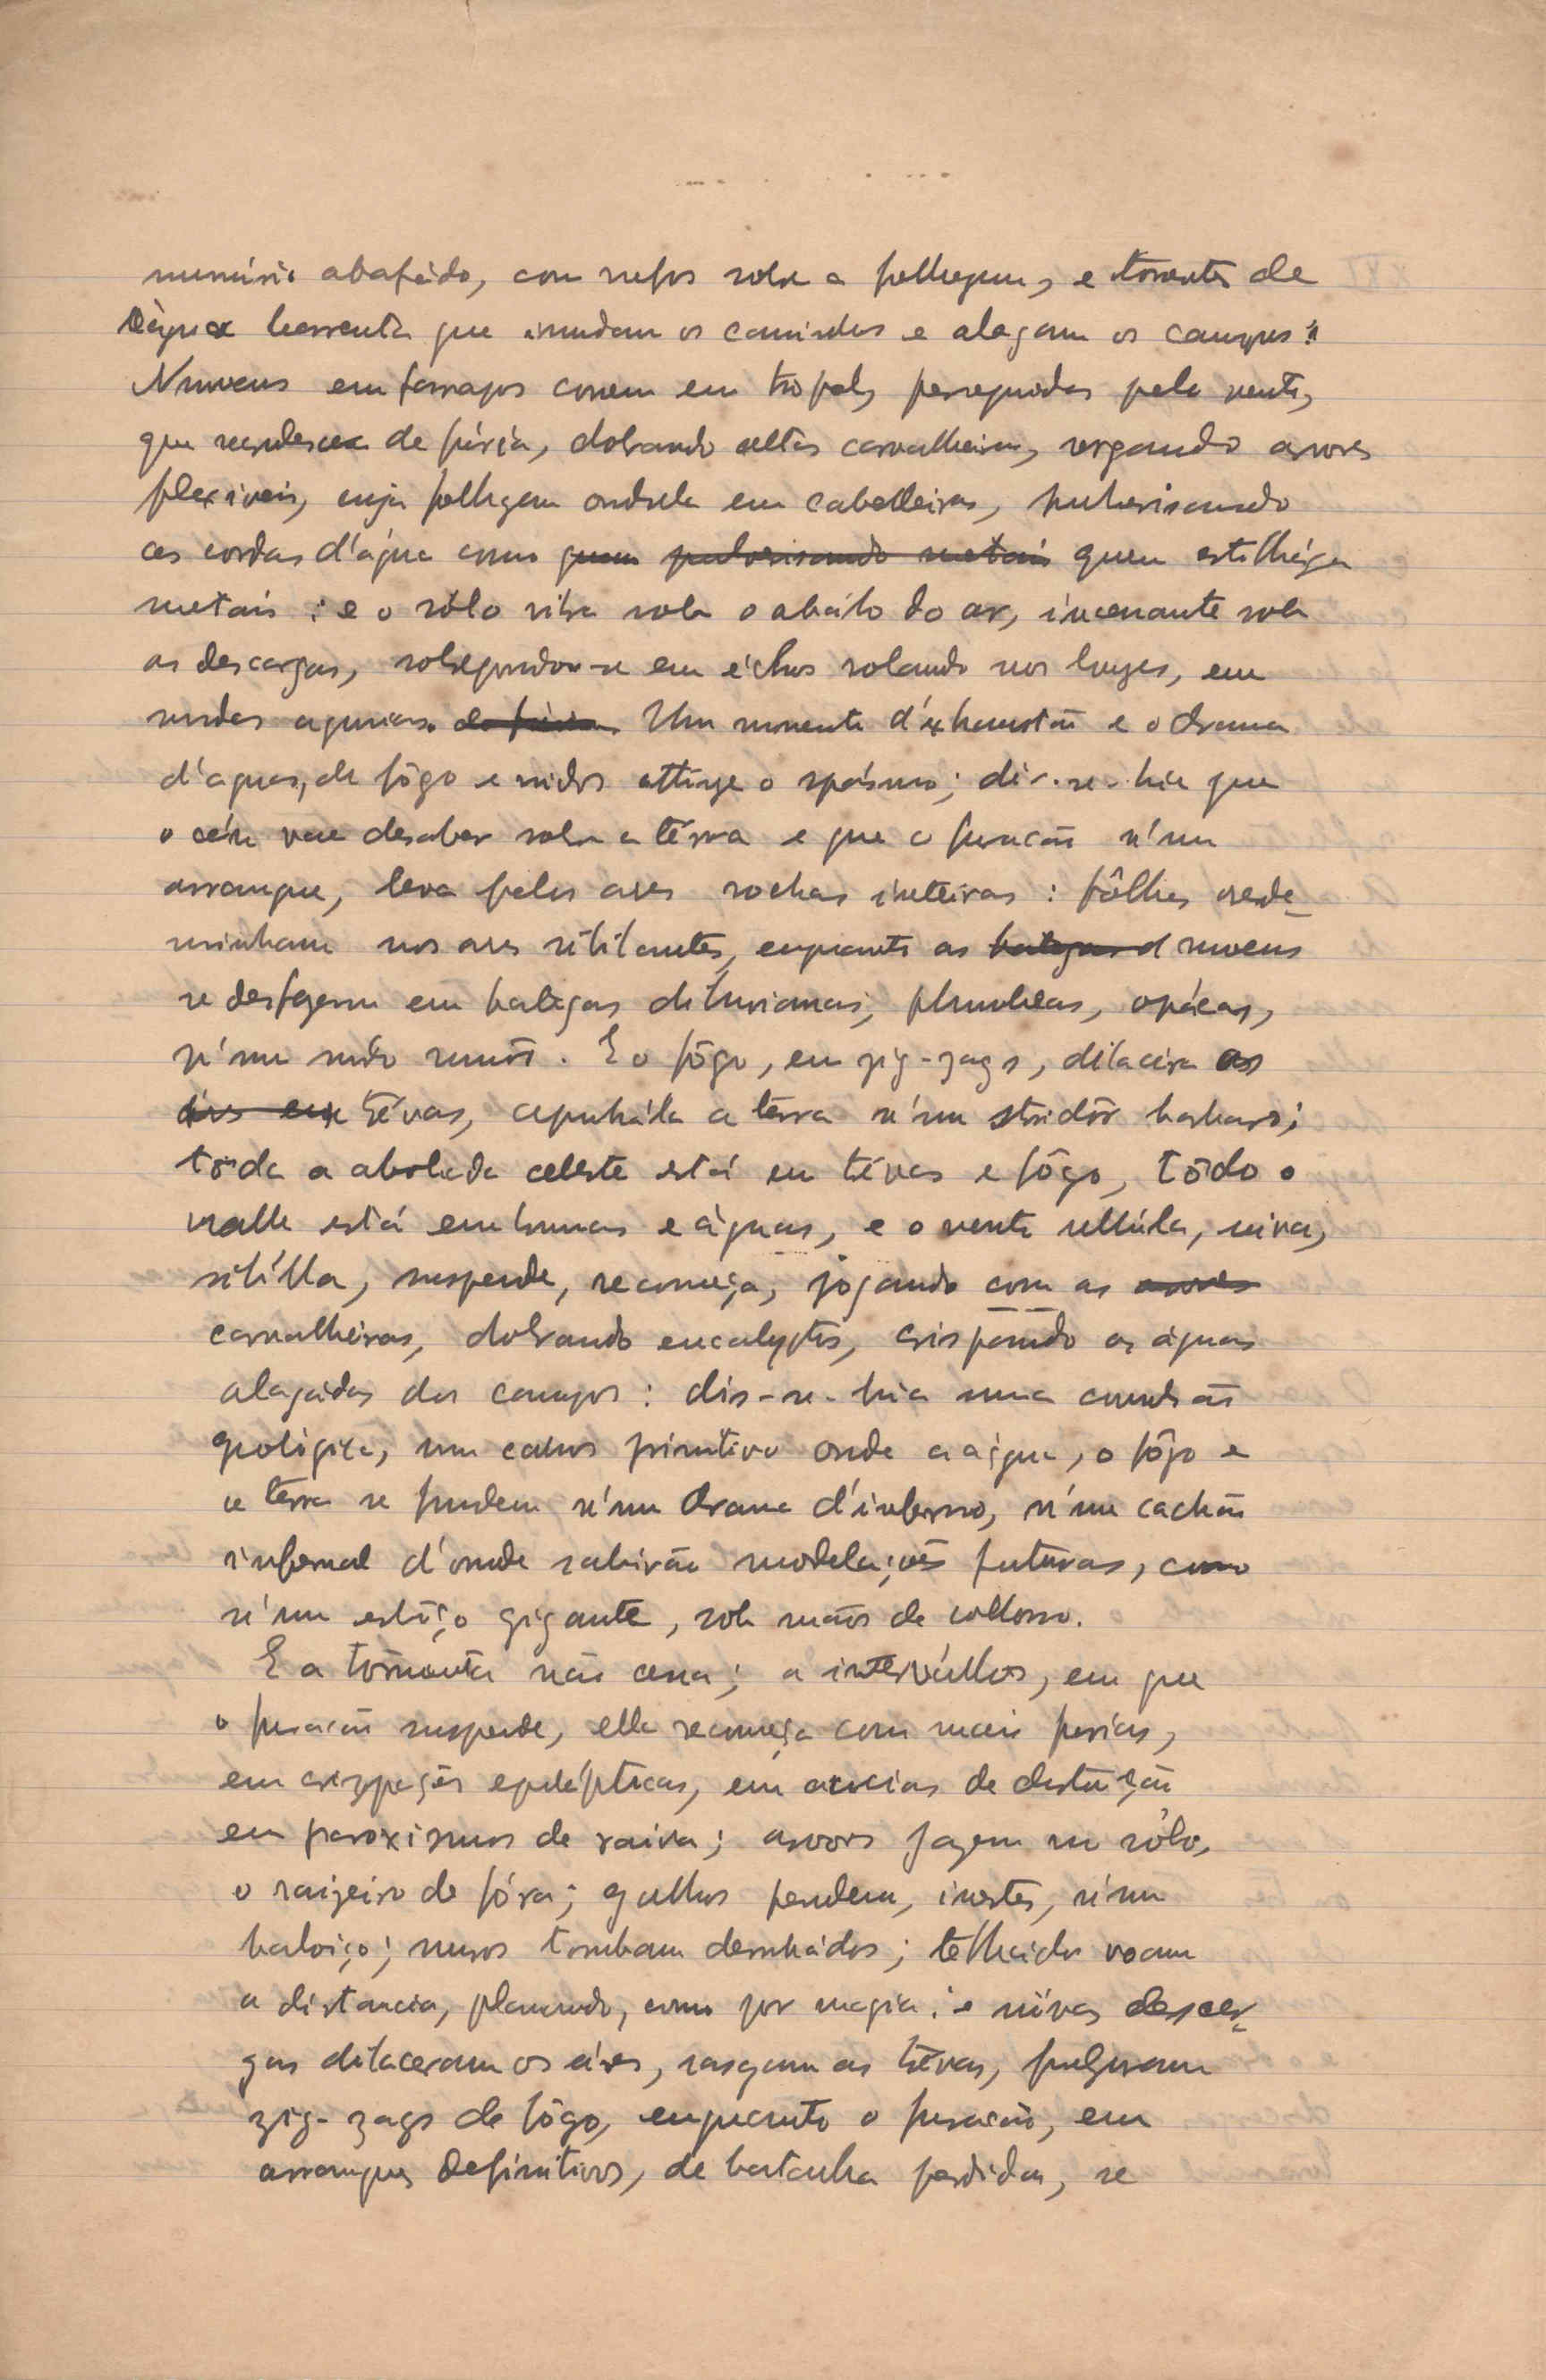 murmúrio abafádo, com rufos sobre a folhagem, e torrentes de
água barrenta que inundam os caminhos e alagam os campos:
Nuvens em farrapos correm em tropel, perseguidas pelo vento,
que recrudesce de fúria, dobrando altas carvalheiras, vergando arvores
flexiveis, cuja folhagem ondula em cabelleiras, pulverisando
as cordas d'água como quem pulverisando metais quem estilháça
metais : e o sólo vibra sob o abálo do ar, incessante sob
as descargas, em échos rolando nos longes, em
rudes agonias. de fúria Um momento d'exhaustão e o drama
d'aguas, de fôgo e ruidos attinge o spásmo; dir-se-hia que
o céu vae desabar sobre a térra e que o furacão n'um
arranque, leva pelos ares rochas inteiras : fôlhas rede-
moinham nos ares sibilantes, enquanto as bategas d nuvens
se desfazem em bategas diluvianas, plumbeas, opácas,
n'um rude rumôr. E o fôgo, em zig-zags, dilacera as
áres em trévas, apunhála a terra n'um stridôr barbaro;
tôda a abobada celeste está em trévas e fôgo, tôdo o
valle está em brumas e águas, e o vento ullúla, uiva,
sibílla, suspende, recomeça, jogando com as arvores
carvalheiras, dobrando eucalyptos, crispando as águas
alagádas dos campos : dir-se-hia uma convulsão
geológica, um cahos primitivo onde a água, o fôgo e
a terra se fundem n'um drama d'inferno, n'um cachão
infernal d'onde sahirão modelações futuras, como
n'um esbôço gigante, sob mãos de collosso.
E a tormenta não cessa; a intervállos, em que
o furacão suspende, ella recomeça com mais furias,
em crispações epilépticas, em ancias de destruição
em paroxismos de raiva; arvores jazem no sólo,
o raizeiro de fóra; galhos pendem, inertes, n'um
baloiço; muros tombam derruhádos; telhados voam
a distancia, planando, como por magia : e nóvas descar-
gas dilaceram os áres, rasgam as trévas, fulguram
zig-zags de fôgo, enquanto o furacão, em
arranques definitivos, de batalha perdida, se